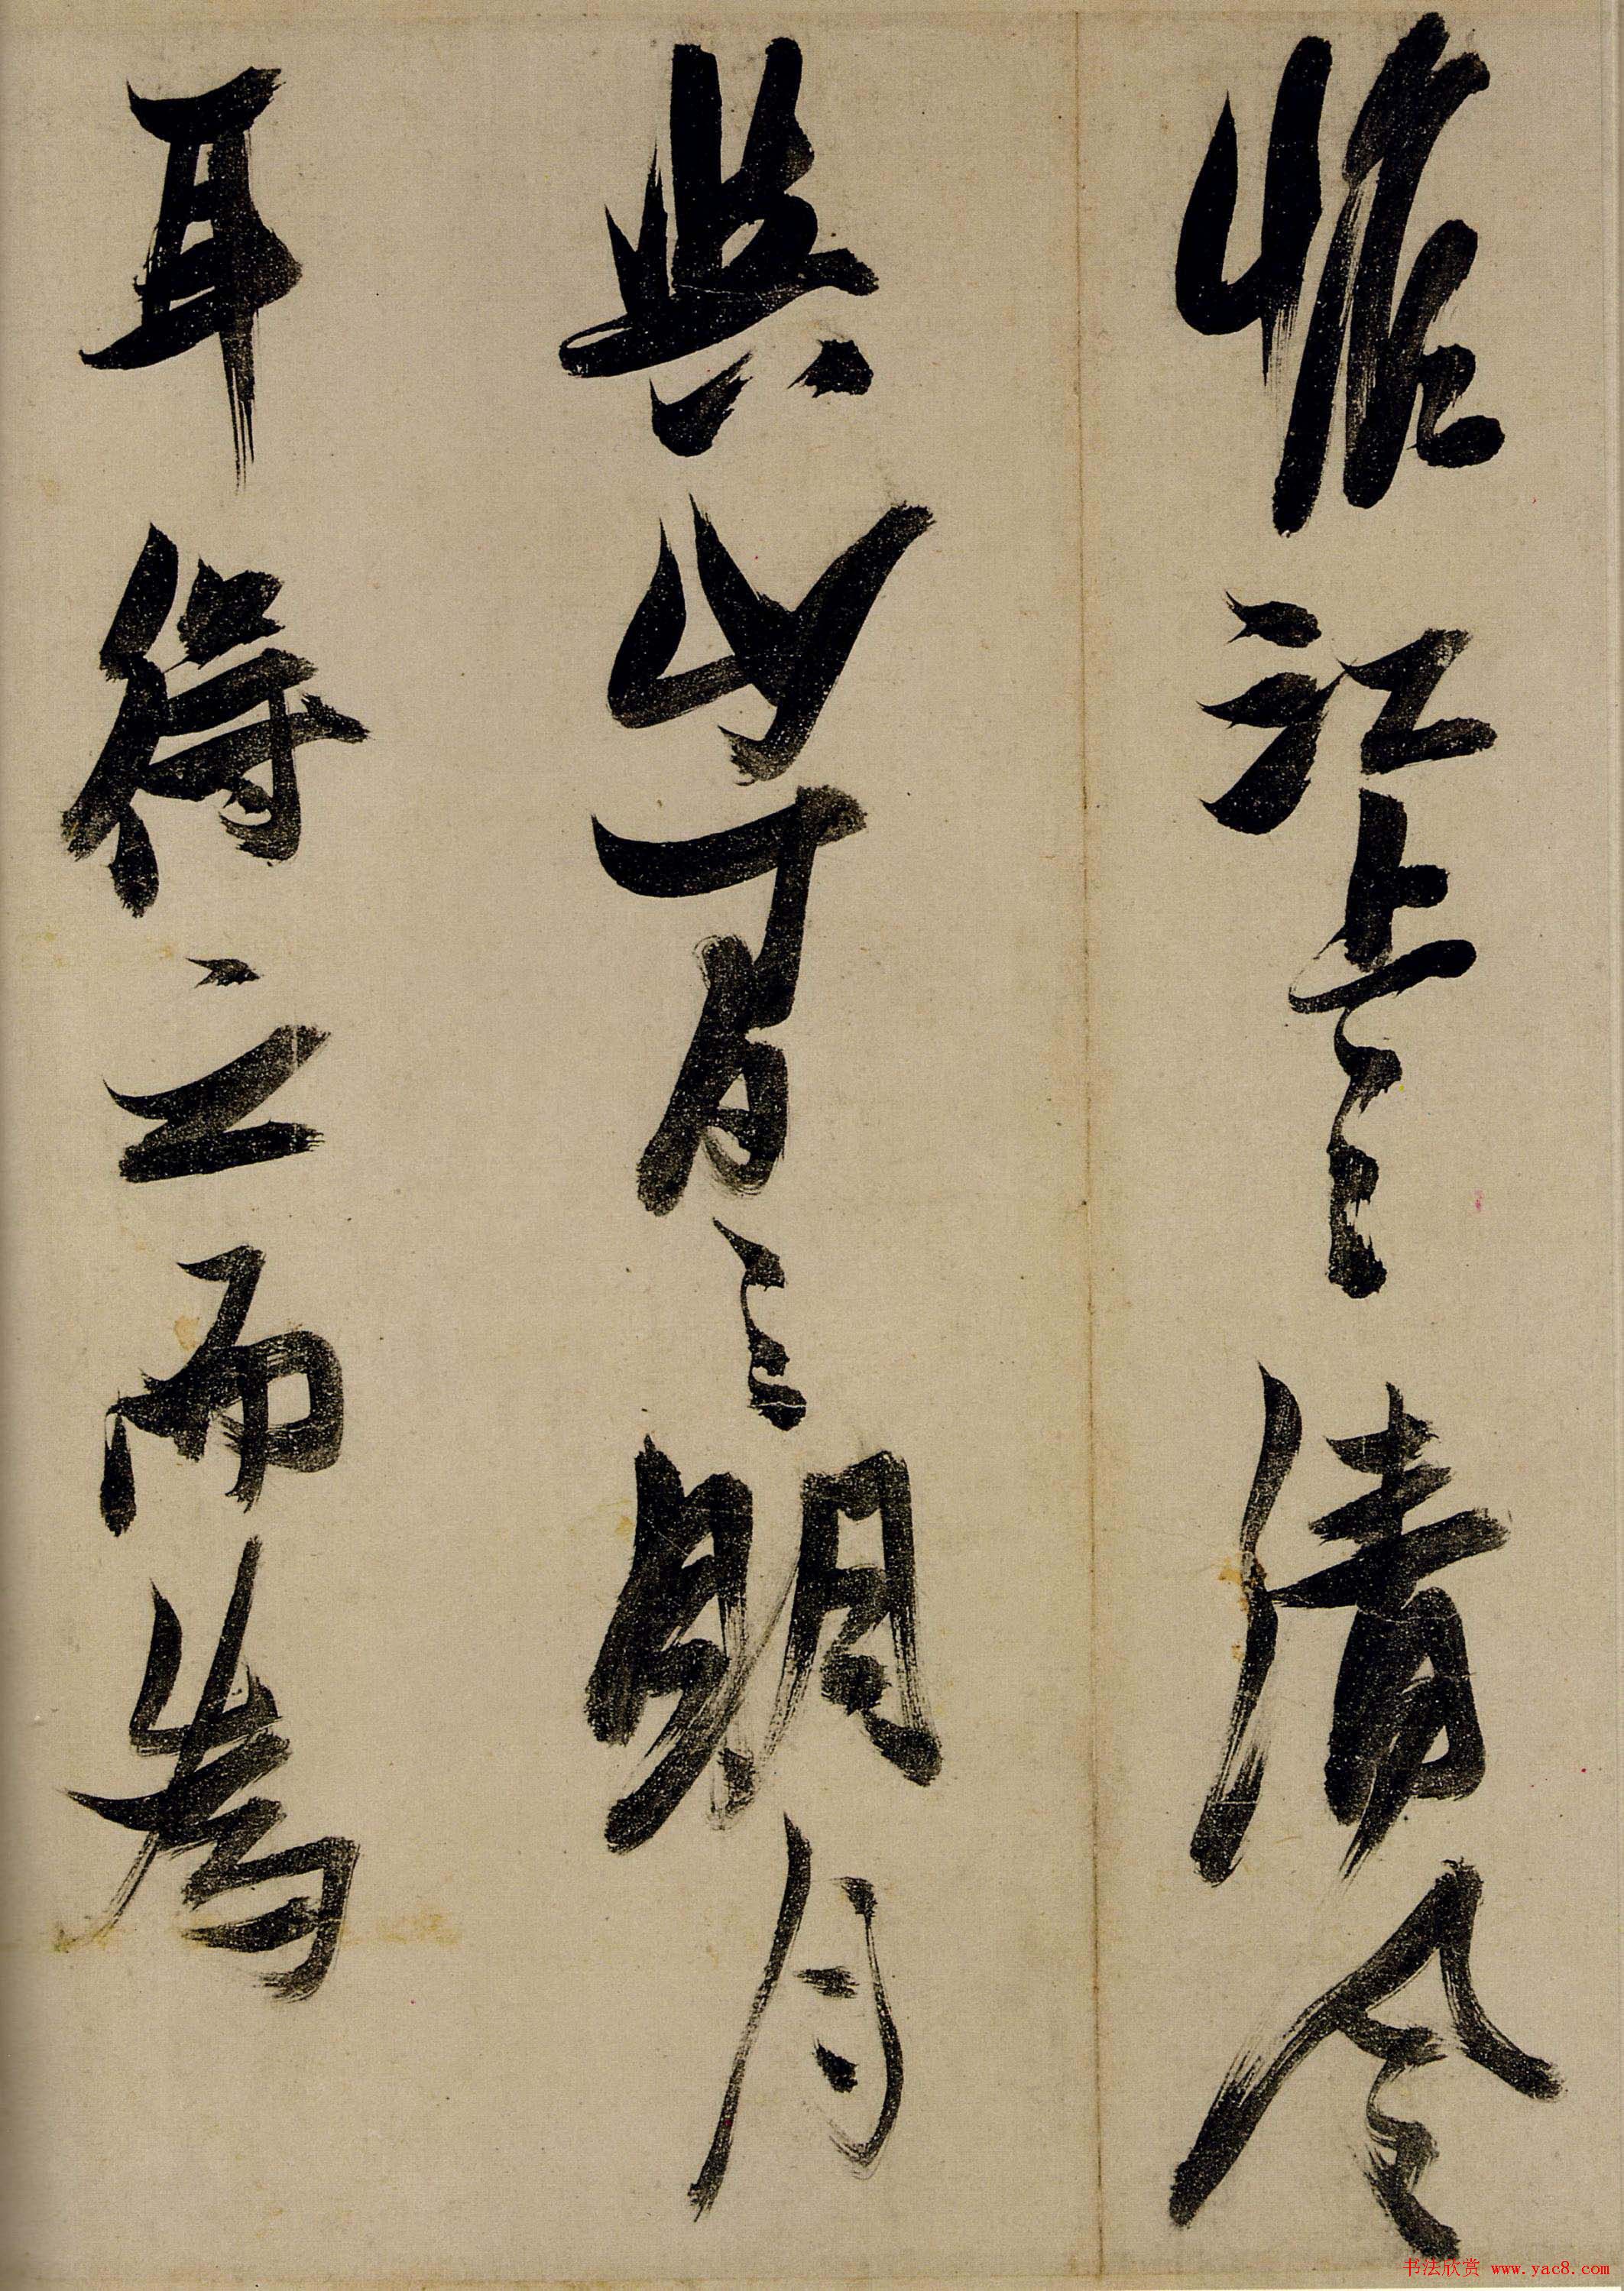 惟江上之清風
與山閒之明月
耳得之而為
书法欣赏 www.yac8.com